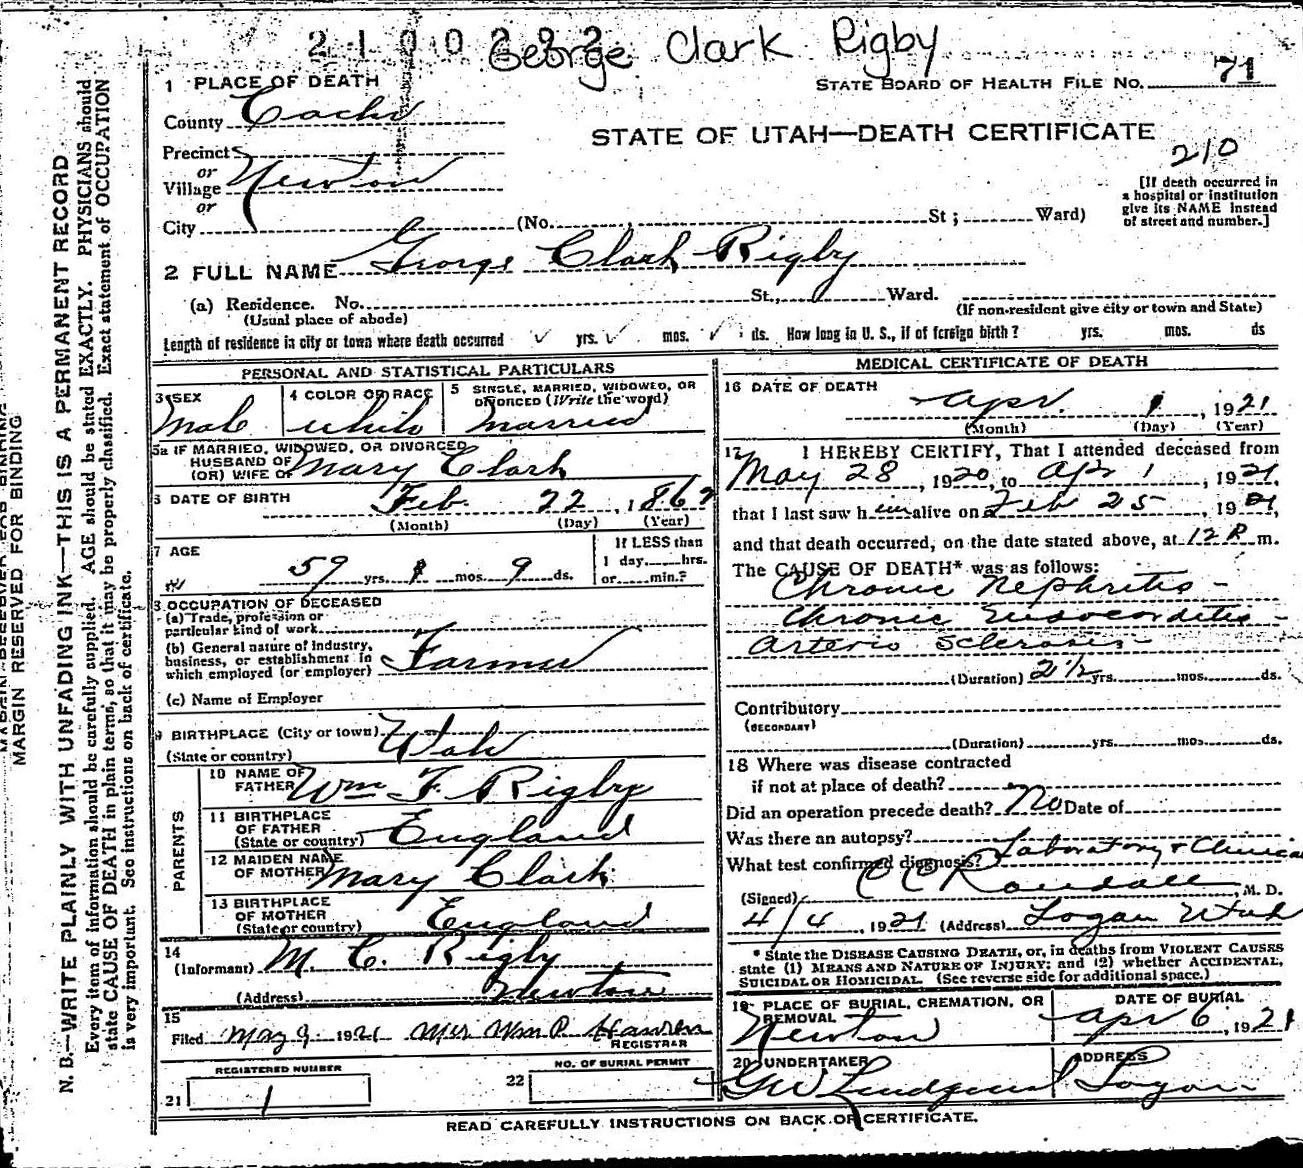 George Clark Rigby
STATE BOARD OF HEALTH FILE NO. 71
STATE OF UTAH—DEATH CERTIFICATE
210
1 PLACE OF DEATH
County Cache
Precinct
or
Village Newton
or
City (No. St; Ward)
[If death occurred in
a hospital or institution
give its NAME instead
of street and number.]
2 FULL NAME George Clark Rigby
(a) Residence. No. St., Ward.
(Usual place of abode)
(If non-resident give city or town and State)
Length of residence in city or town where death occurred yrs. mos. ds. How long in U. S., if of foreign birth? yrs. mos. ds
PERSONAL AND STATISTICAL PARTICULARS
3 SEX
Male
4 COLOR OR RACE
white
5 SINGLE, MARRIED, WIDOWED, OR
DIVORCED (Write the word)
Married
5a IF MARRIED, WIDOWED, OR DIVORCED
HUSBAND OF
(OR) WIFE OF Mary Clark
6 DATE OF BIRTH Feb. 22, 186
(Month) (Day) (Year)
7 AGE
59 yrs. 1 mos. 9 ds.
If LESS than
1 day, hrs.
or min.?
8 OCCUPATION OF DECEASED
(a) Trade, profession or
particular kind of work
(b) General nature of Industry,
business, or establishment in
which employed (or employer) Farmer
(c) Name of Employer
9 BIRTHPLACE (City or town)
(State or country) Utah
PARENTS
10 NAME OF
FATHER Wm F. Rigby
11 BIRTHPLACE
OF FATHER
(State or country) England
12 MAIDEN NAME
OF MOTHER Mary Clark
13 BIRTHPLACE
OF MOTHER
(State or country) England
14
(Informant) M. C. Rigby
(Address) Newton
15
Filed May 9 1921 Mrs Wm P.
REGISTRAR
REGISTERED NUMBER
21 1
NO. OF BURIAL PERMIT
22
MEDICAL CERTIFICATE OF DEATH
16 DATE OF DEATH
Apr. 1, 1921
(Month) (Day) (Year)
17 I HEREBY CERTIFY, That I attended deceased from
May 28, 1920, to Apr 1, 1921,
that I last saw him alive on Feb 25 1921,
and that death occurred, on the date stated above, at 12 P m.
The CAUSE OF DEATH* was as follows:
Chronic Nephritis -
Chronic Endocarditis -
Arterio Sclerosis -
(Duration) 2½ yrs. mos. ds.
Contributory
(SECONDARY)
(Duration) yrs. mos. ds.
18 Where was disease contracted
if not at place of death?
Did an operation precede death? No Date of
Was there an autopsy?
What test confirmed diagnosis? Laboratory & Clinical
(Signed) C C Randall, M. D.
4/4 1921 (Address) Logan Utah
* State the DISEASE CAUSING DEATH, or, in deaths from VIOLENT CAUSES
state (1) MEANS AND NATURE OF INJURY; and (2) whether ACCIDENTAL,
SUICIDAL OR HOMICIDAL. (See reverse side for additional space.)
19 PLACE OF BURIAL, CREMATION, OR
REMOVAL
Newton
DATE OF BURIAL
Apr 6, 1921
20 UNDERTAKER
GW Lindquist
ADDRESS
Logan
READ CAREFULLY INSTRUCTIONS ON BACK OF CERTIFICATE.
MARGIN RESERVED FOR BINDING
N. B.—WRITE PLAINLY WITH UNFADING INK—THIS IS A PERMANENT RECORD
Every item of information should be carefully supplied. AGE should be stated EXACTLY. PHYSICIANS should
state CAUSE OF DEATH in plain terms, so that it may be properly classified. Exact statement of OCCUPATION
is very important. See instructions on back of certificate.